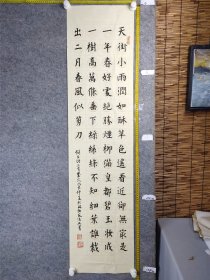 天街小雨潤如酥草色遙看近卻無最是
一年春好處絕勝煙柳滿皇都碧玉妝成
一樹高萬條垂下綠絲絛不知細葉誰裁
出二月春風似剪刀